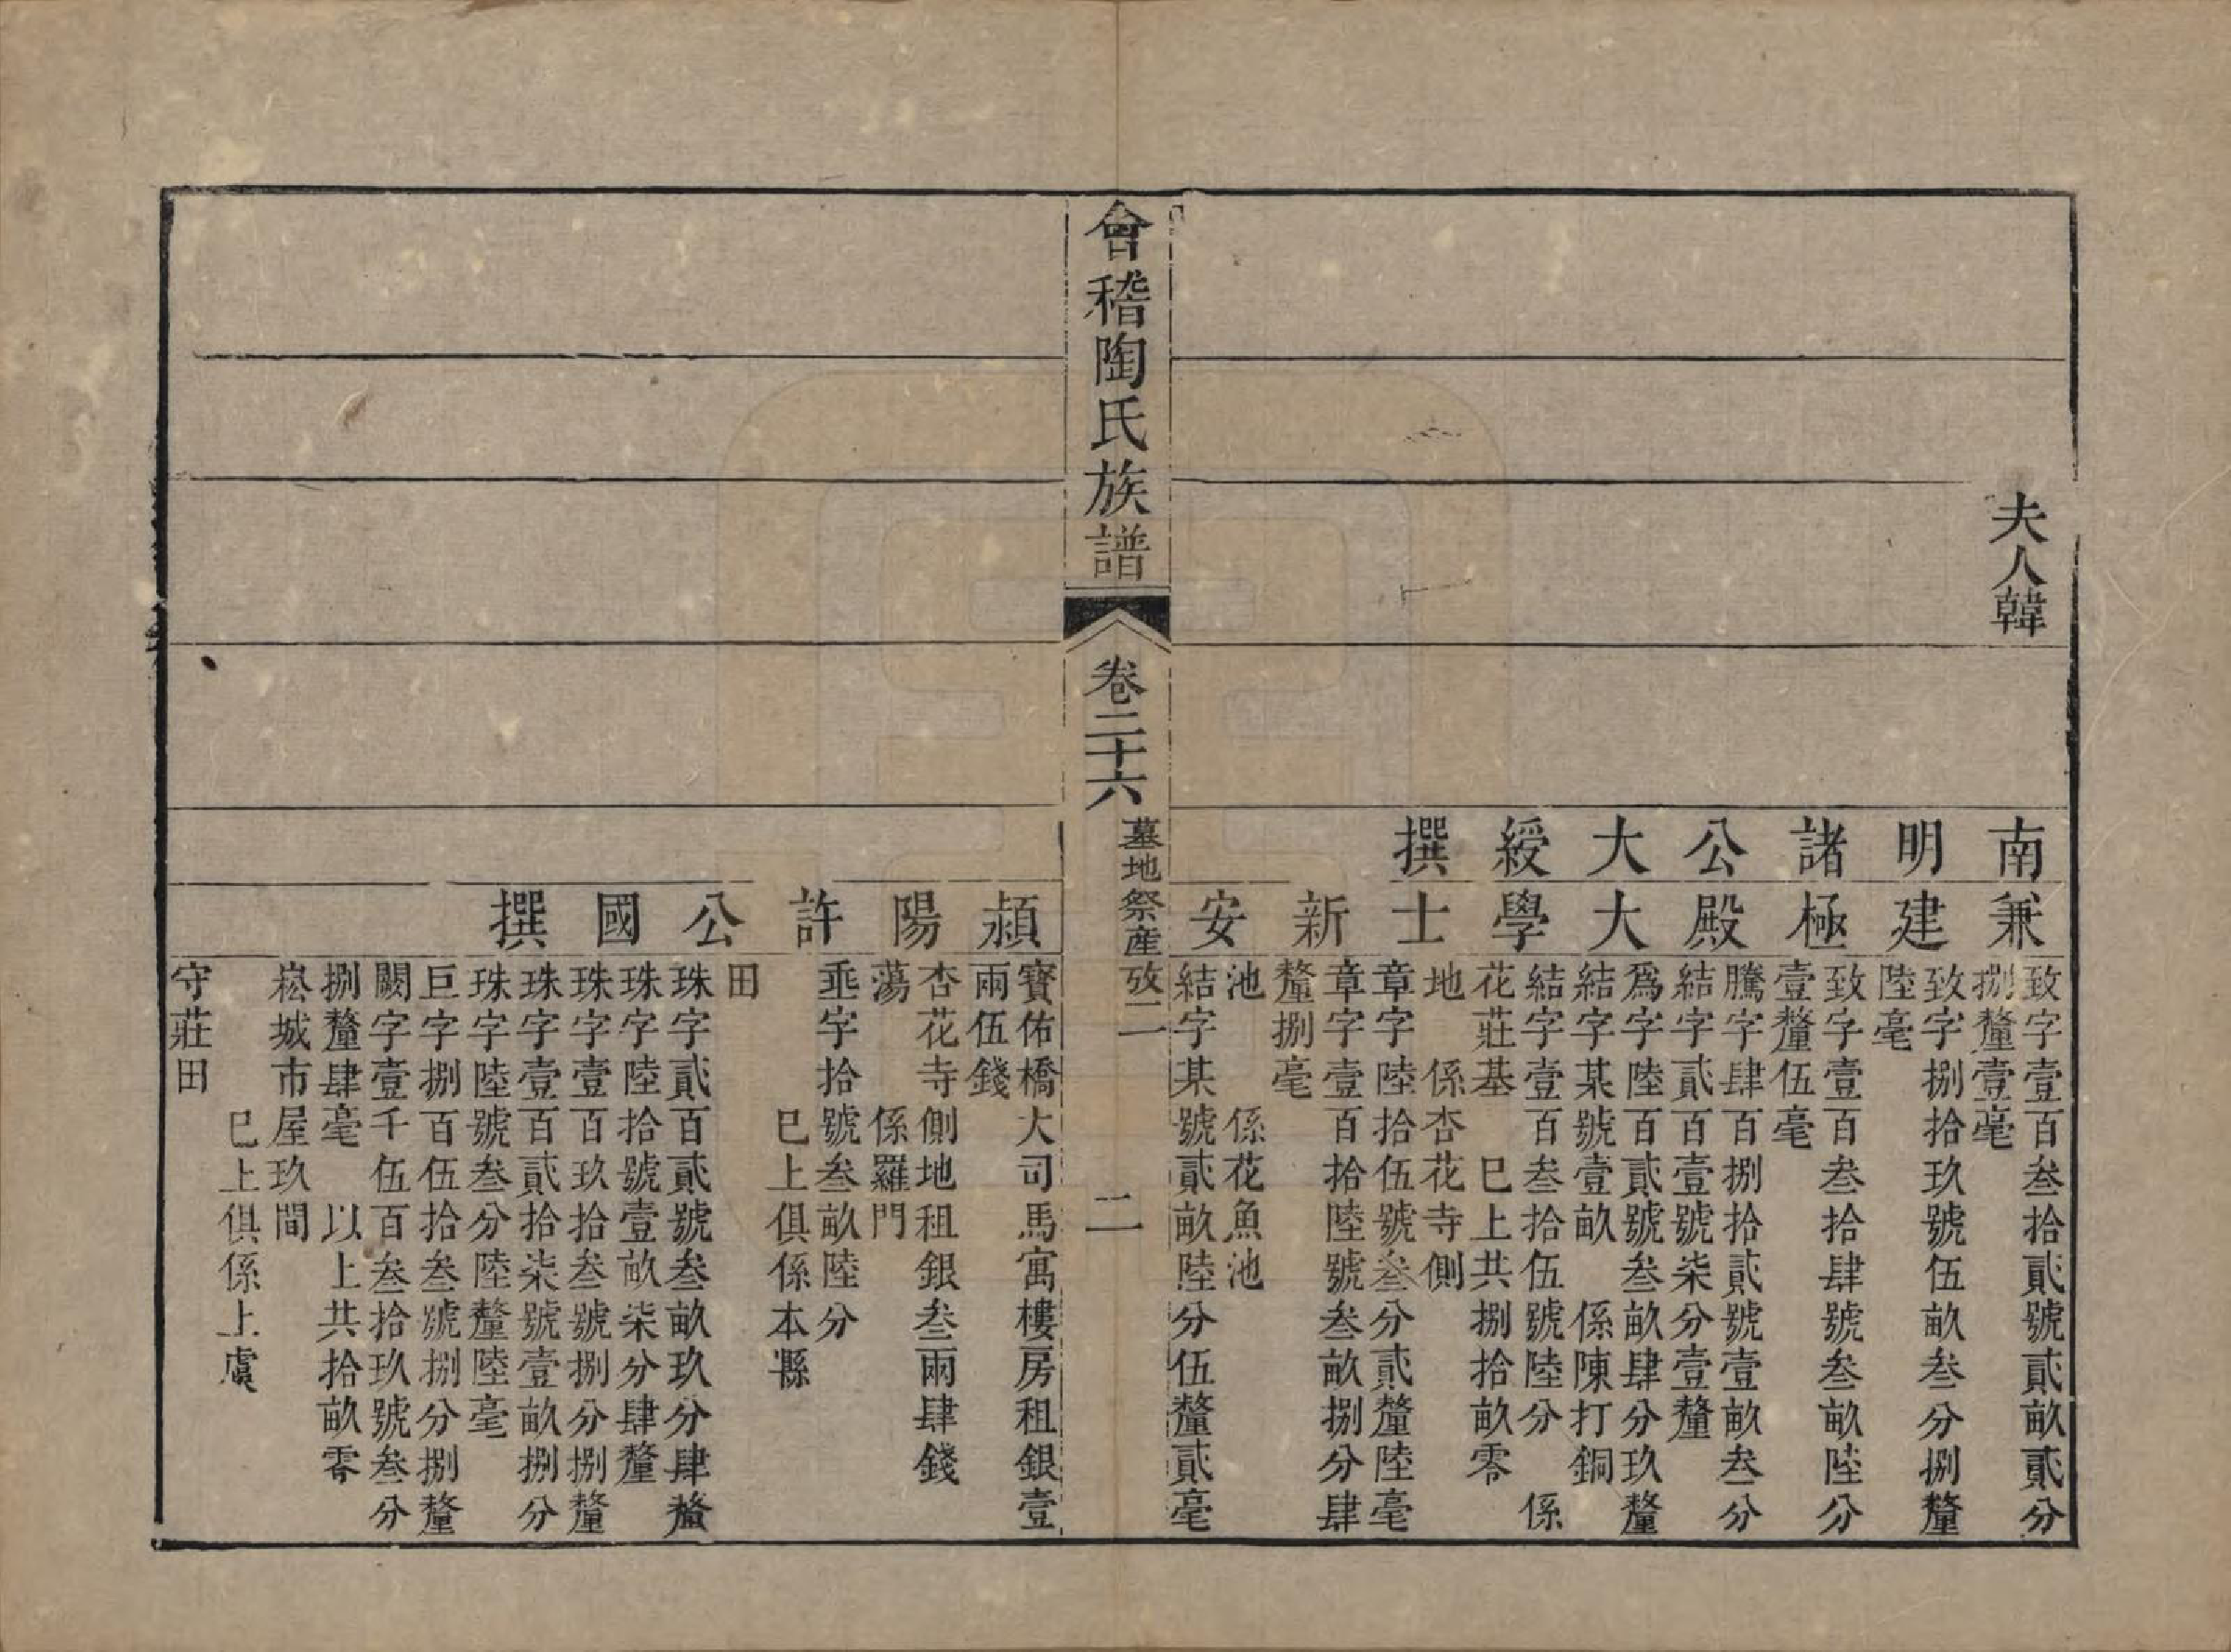 夫人韓
南明諸公大綬撰
兼建極殿大學士新安
致字壹百叁拾貳號貳畝貳分
捌釐壹毫
致字捌拾玖號伍畝叁分捌釐
陸毫
致字壹百叁拾肆號叁畝陸分
壹釐伍毫
騰字肆百捌拾貳號壹畝叁分
結字貳百壹號柒分壹釐
爲字陸百貳號叁畝肆分玖釐
結字某號壹畝 係陳打銅
結字壹百叁拾伍號陸分 係
花莊基 巳上共捌拾畝零
地 係杏花寺側
章字陸拾伍號叁分貳釐陸毫
章字壹百拾陸號叁畝捌分肆
釐捌毫
池 係花魚池
結字某號貳畝陸分伍釐貳毫
會稽陶氏族譜
卷二十六
墓地祭産攷二
二
潁陽許公國撰
寶佑橋大司馬寓樓房租銀壹
兩伍錢
杏花寺側地租銀叁兩肆錢
蕩 係羅門
垂字拾號叁畝陸分
巳上俱係本縣
田
珠字貳百貳號叁畝玖分肆釐
珠字陸拾號壹畝柒分肆釐
珠字壹百玖拾叁號捌分捌釐
珠字壹百貳拾柒號壹畝捌分
珠字陸號叁分陸釐陸毫
巨字捌百伍拾叁號捌分捌釐
闕字壹千伍百叁拾玖號叁分
捌釐肆毫 以上共拾畝零
崧城市屋玖間
巳上俱係上虞
守莊田